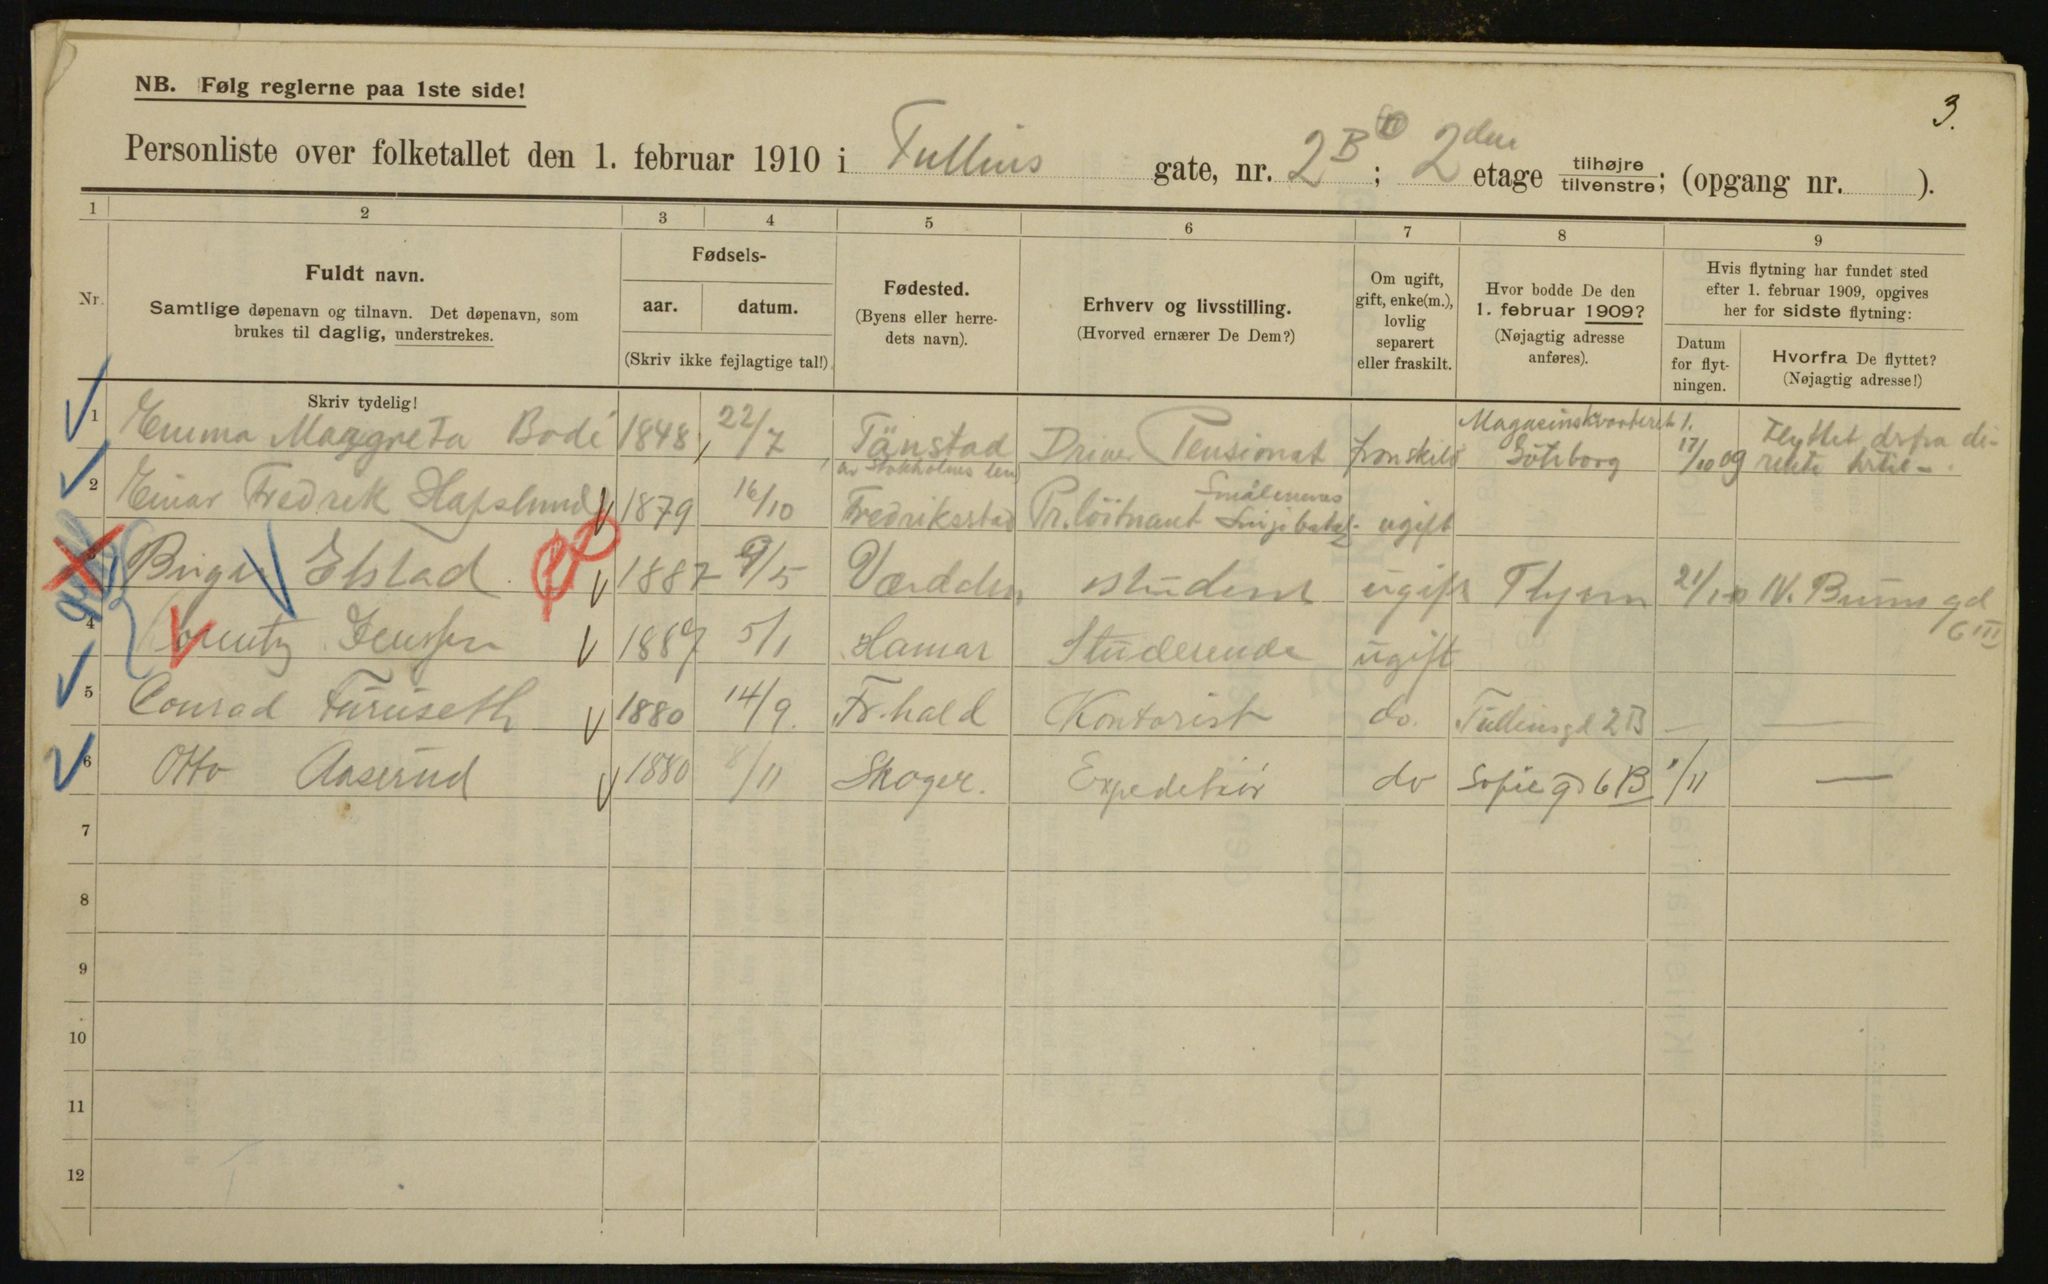 3.
NB. Følg reglerne paa 1ste side!
Personliste over folketallet den 1. februar 1910 i Tullins gate, nr. 2B; 2den etage tilhøjre tilvenstre; (opgang nr. ).
1 2 3 4 5 6 7 8 9
Nr.
Fuldt navn.
Samtlige døpenavn og tilnavn. Det døpenavn, som
brukes til daglig, understrekes.
Skriv tydelig!
Fødsels-
aar. datum.
(Skriv ikke fejlagtige tal!)
Fødested.
(Byens eller herre-
dets navn).
Erhverv og livsstilling.
(Hvorved ernærer De Dem?)
Om ugift,
gift, enke(m.),
lovlig
separert
eller fraskilt.
Hvor bodde De den
1. februar 1909?
(Nøjagtig adresse
anføres).
Hvis flytning har fundet sted
efter 1. februar 1909, opgives
her for sidste flytning:
Datum
for flyt-
ningen.
Hvorfra De flyttet?
(Nøjagtig adresse!)
1 Emma Margreta Bodé 1848 22/7 Tänstad av Stokholms len Driver Pensionat fraskilt Magasinskvarteret 1. Göteborg 17/10 09 Flyttet derfra di-
rekte hertil
2 Einar Fredrik Hafslund 1879 16/10 Fredriksstad Pr. löitnant Smålenenes Linjebatal. ugift
3 Birger Elstad 1887 9/5 student ugift 21/1 10 N. Bruns gd
6 III
4 Lorentz Jenssen 1887 5/1 Hamar Studerende ugift
5 Conrad Furuseth 1880 14/9. Fr.hald Kontorist do. Tullinsgd 2B — —
6 Otto Aaserud 1880 8/11 Skoger. Expeditör do Sofiegd 6B 1/11 —
7
8
9
10
11
12